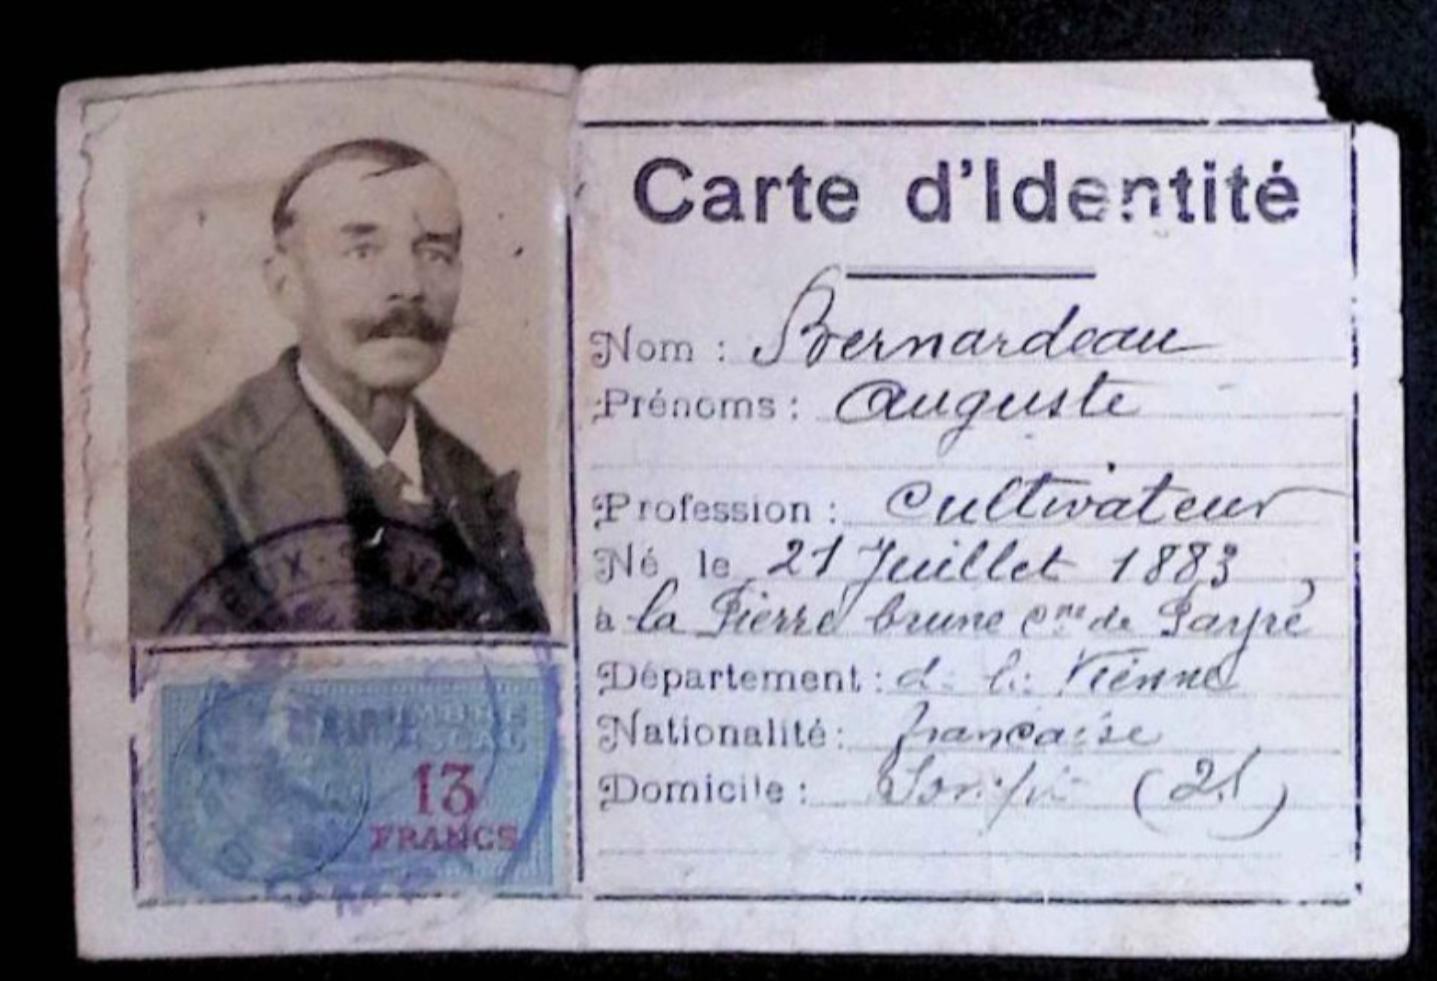 Carte d'Identité
Nom : Bernardeau
Prénoms : Auguste
Profession : Cultivateur
Né le 21 Juillet 1883,
à la Pierre brune Cne de Payré
Département : de la Vienne
Nationalité : française
Domicile :
DEUX-SEVRES
MAIRIE
13
FRANCS